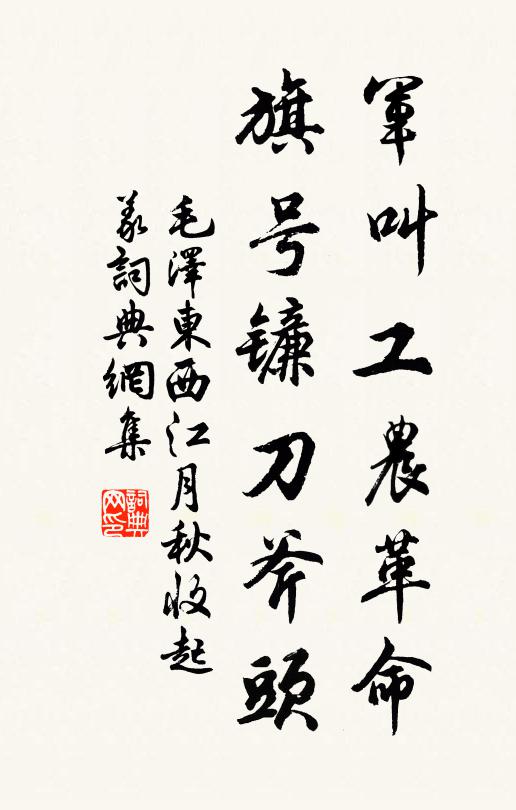 軍叫工農革命
旗号镰刀斧頭
毛澤東西江月秋收起
義詞典網集
詞典网印